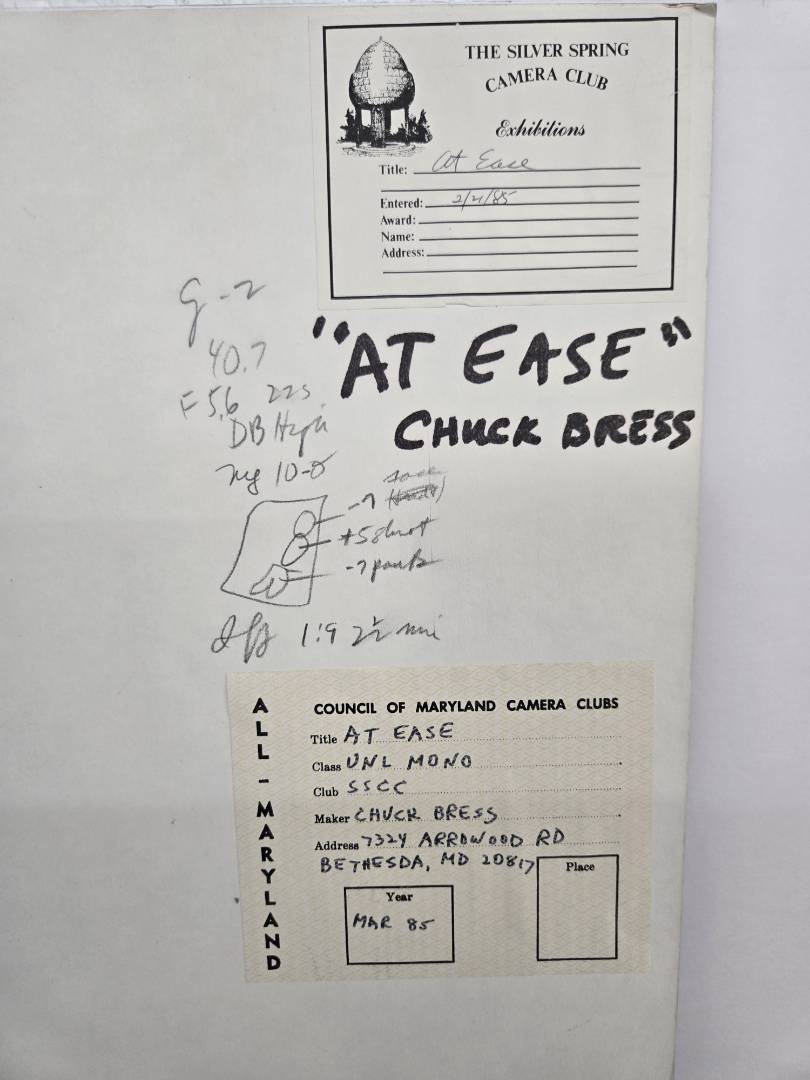 THE SILVER SPRING
CAMERA CLUB
Exhibitions
Title: At Ease
Entered: 2/21/85
Award:
Name:
Address:
G-2
40.7
F 5.6 22s.
"AT EASE"
CHUCK BRESS
DB
10-8
-7
+5
-7
1:9 2½ min
ALL-MARYLAND
COUNCIL OF MARYLAND CAMERA CLUBS
Title AT EASE
Class UNL MONO
Club SSCC
Maker CHUCK BRESS
Address 7324 ARROWOOD RD
BETHESDA, MD 20817
Place
Year
MAR 85